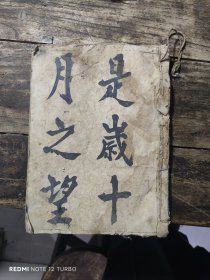 是歲十
月之望
REDMI NOTE 12 TURBO